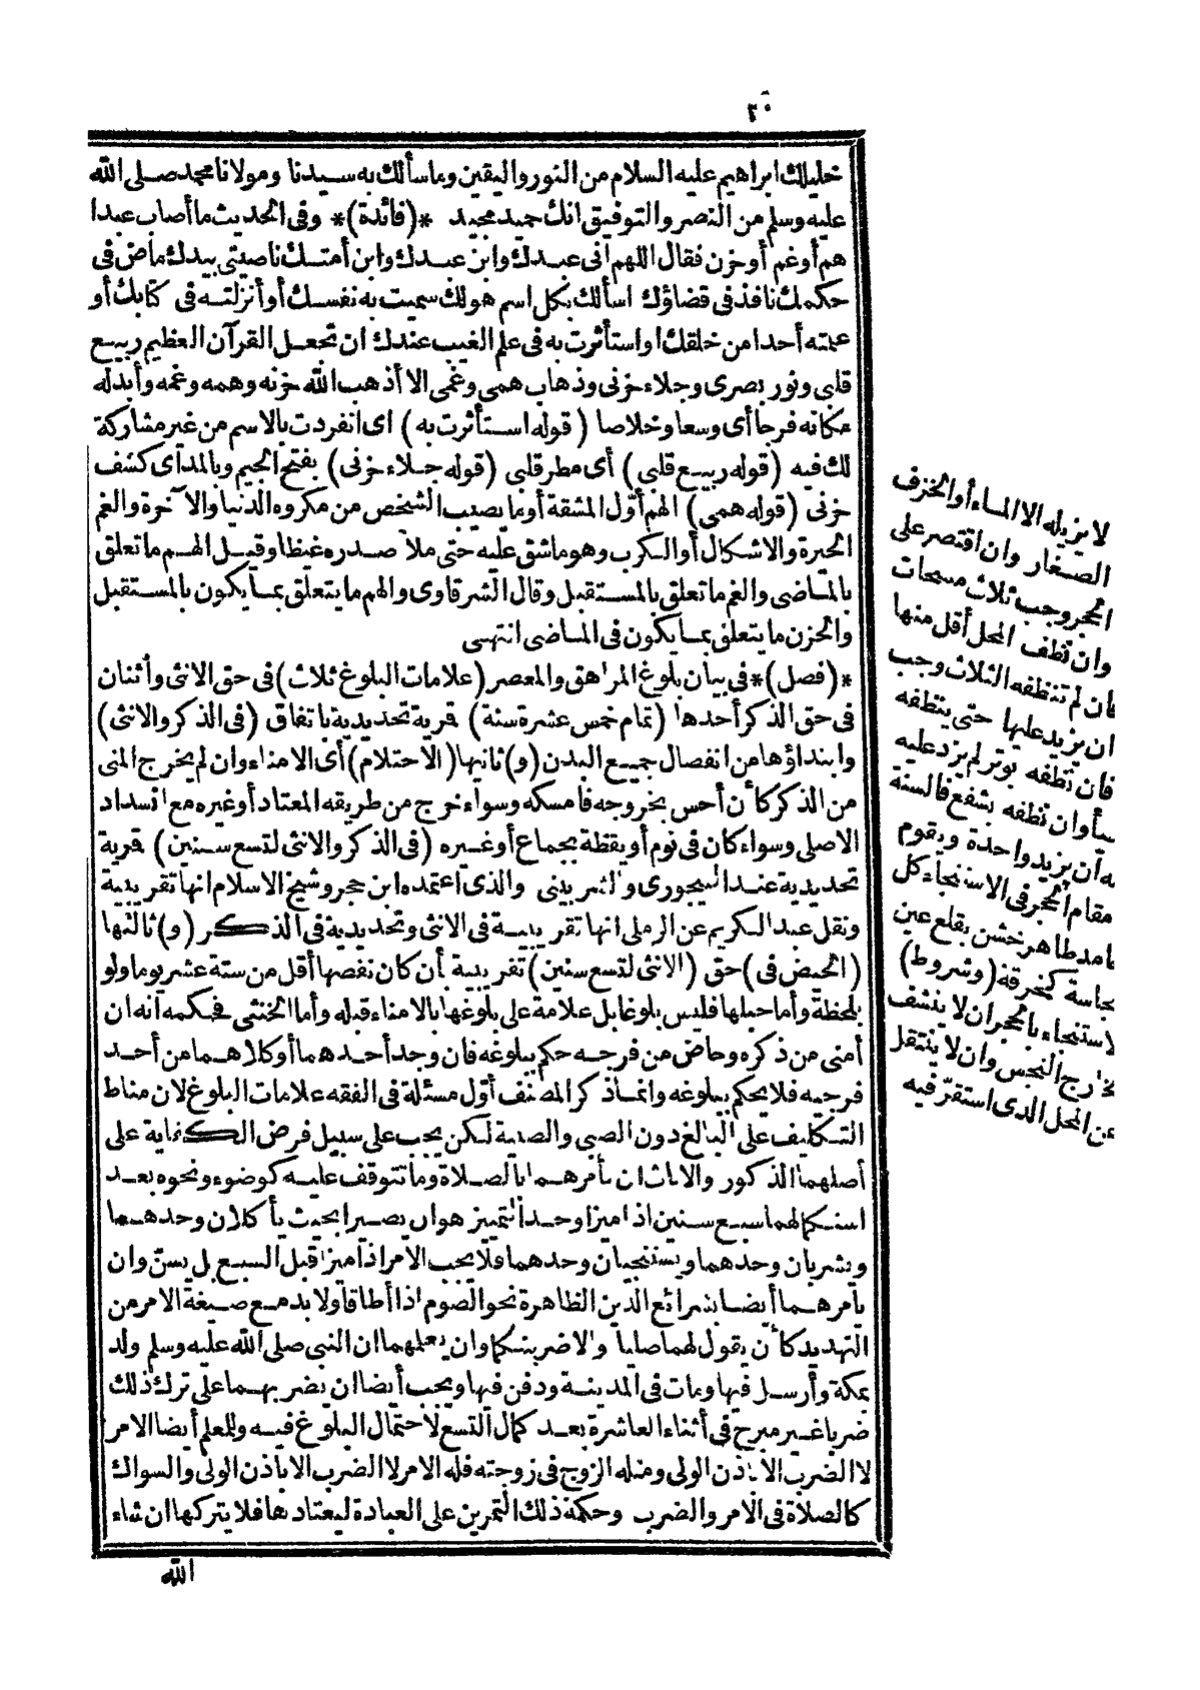 ٢٠
خليلك ابراهيم عليه السلام من النور واليقين وماسألك به سيدنا ومولانا محمد صلى الله
عليه وسلم من النصر والتوفيق انك حميد مجيد *(فائدة)* وفى الحديث ما أصاب عبدا
هم أوغم أوحزن فقال اللهم انى عبدك وابن عبدك وابن أمتك ناصيتى بيدك ماض فى
حكمك نافذ فى قضاؤك اسألك بكل اسم هو لك سميت به نفسك أو أنزلته فى كتابك أو
علمته أحدا من خلقك او استأثرت به فى علم الغيب عندك ان تجعل القرآن العظيم ربيع
قلبى ونور بصرى وجلاء حزنى وذهاب همى وغمى الا أذهب الله حزنه وهمه وغمه وأبدله
مكانه فرحا أى وسعا وخلاصا (قوله استأثرت به) اى انفردت بالاسم من غير مشاركة
لك فيه (قوله ربيع قلبى) أى مطر قلبى (قوله جلاء حزنى) بفتح الجيم وبالمد أى كشف
حزنى (قوله همى) الهم أوّل المشقة أوما يصيب الشخص من مكروه الدنيا والآخرة والغم
الحيرة والاشكال أو الكرب وهو ماشق عليه حتى ملأ صدره غيظا وقيل الهم ما تعلق
بالماضى والغم ما تعلق بالمستقبل وقال الشرقاوى والهم ما يتعلق بما يكون بالمستقبل
والحزن ما يتعلق بما يكون فى الماضى انتهى
*(فصل)* فى بيان بلوغ المراهق والمعصر (علامات البلوغ ثلاث) فى حق الانثى وأثنان
فى حق الذكر أحدها (تمام خمس عشرة سنة) قمرية تحديدية باتفاق (فى الذكر والانثى)
وابتداؤها من انفصال جميع البدن (و) ثانيها (الاحتلام) أى الامناء وان لم يخرج المنى
من الذكر كأن أحس بخروجه فامسكه وسواء خرج من طريقه المعتاد أوغيره مع انسداد
الاصلى وسواء كان فى نوم أو يقظة بجماع أوغيره (فى الذكر والانثى لتسع سنين) قمرية
تحديدية عند البيجورى والشربينى والذى اعتمده ابن حجر وشيخ الاسلام انها تقريبية
ونقل عبد الكريم عن الرملى انها تقريبية فى الانثى وتحديدية فى الذكر (و) ثالثها
(الحيض فى) حق (الانثى لتسع سنين) تقريبية بأن كان نقصها أقل من ستة عشر يوما ولو
بلحظة وأما حبلها فليس بلوغا بل علامة على بلوغها بالامناء قبله وأما الخنثى فحكمه أنه ان
أمنى من ذكره وحاض من فرجه حكم ببلوغه فان وجد أحدهما أوكلاهما من أحد
فرجيه فلا يحكم ببلوغه وانما ذكر المصنف أوّل مسئلة فى الفقه علامات البلوغ لان مناط
التكليف على البالغ دون الصبى والصبية لكن يجب على سبيل فرض الكفاية على
أصلهما الذكور والاناث ان يأمرهما بالصلاة وما تتوقف عليه كوضوء ونحوه بعد
استكمالهما سبع سنين اذا ميزا وحد التمييز هو ان يصيرا بحيث يأكلان وحدهما
ويشربان وحدهما ويستنجيان وحدهما فلا يجب الامر اذا ميزا قبل السبع بل يسنّ وان
يأمرهما أيضا بشرائع الدين الظاهرة نحو الصوم اذا أطاقا ولا بد مع صيغة الامر من
التهديد كأن يقول لهما صليا والا ضربتكما وان يعلمهما ان النبى صلى الله عليه وسلم ولد
بمكة وأرسل فيها ومات فى المدينة ودفن فيها ويجب أيضا ان يضربهما على ترك ذلك
ضربا غير مبرح فى أثناء العاشرة بعد كمال التسع لاحتمال البلوغ فيه وللمعلم أيضا الامر
لا الضرب الا باذن الولى ومثله الزوج فى زوجته فله الامر لا الضرب الا باذن الولى والسواك
كالصلاة فى الامر والضرب وحكمة ذلك التمرين على العبادة ليعتادها فلا يتركها ان شاء
الله
لا يزيله الا الماء أو الخزف
الصغار وان اقتصر على
الحجر وجب ثلاث مسحات
وان نظف المحل أقل منها
فان لم تنظفه الثلاث وجب
ان يزيد عليها حتى ينظفه
فان نظفه بوتر لم يزد عليه
شيأ وان نظفه بشفع فالسنة
له أن يزيد واحدة ويقوم
مقام الحجر فى الاستنجاء كل
جامد طاهر خشن يقلع عين
نجاسة كخرقة (وشروط)
الاستنجاء بالحجر ان لا ينشف
الخارج النجس وان لا ينتقل
عن المحل الذى استقرّ فيه